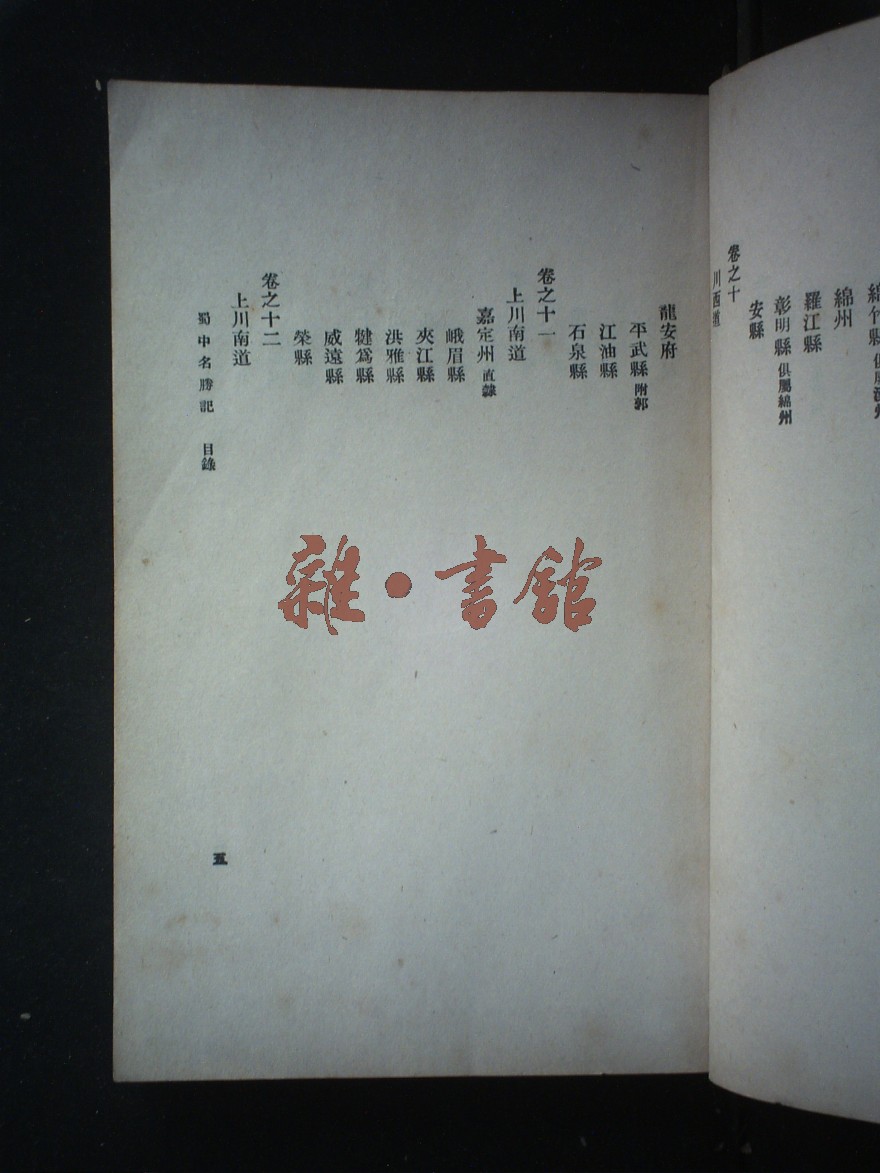 綿竹縣
綿州
羅江縣
彰明縣 俱屬綿州
安縣
卷之十
川西道
龍安府
平武縣 附郭
江油縣
石泉縣
卷之十一
上川南道
嘉定州 直隸
峨眉縣
夾江縣
洪雅縣
犍爲縣
威遠縣
榮縣
卷之十二
上川南道
蜀中名勝記 目錄
五
雜·書館